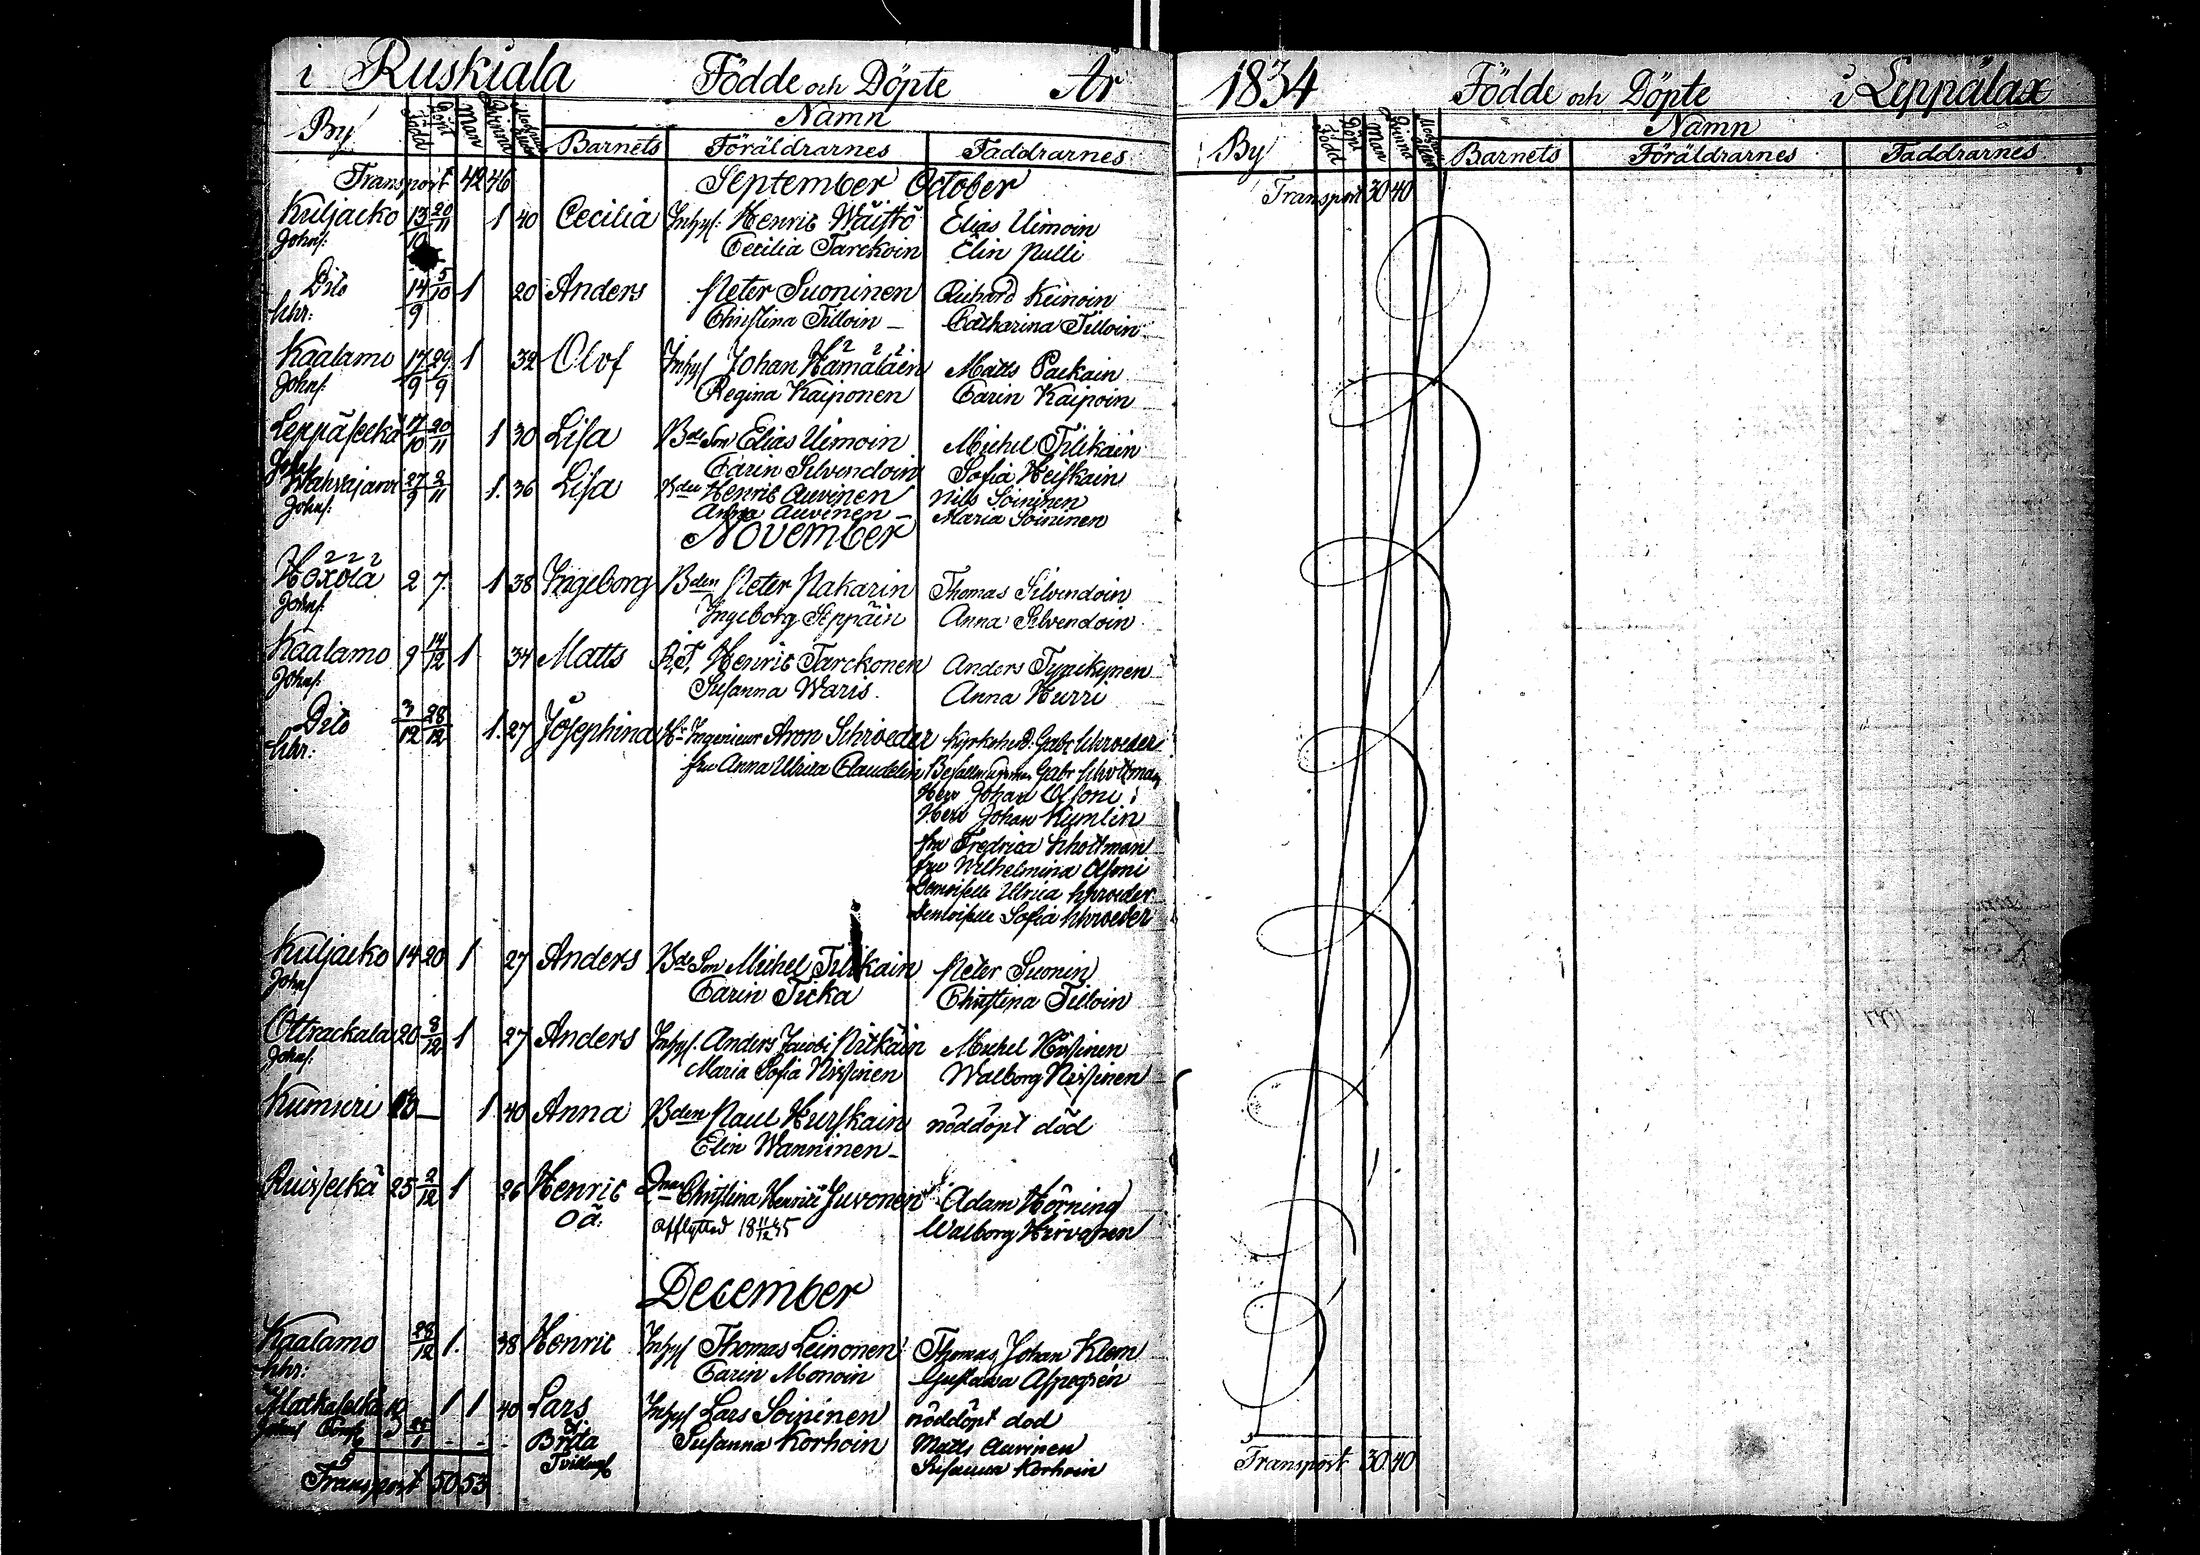 i Ruskiala Födde och Döpte År
By Född Döpt Man Qvinna Namn
Barnets Föräldrarnes Faddrarnes
Transport 42 46 September October
Kuljacko 13/10 20/11 1 40 Cecilia Inhys: Henric Wäistö Elias Uimoin
Johns: Cecilia Tarckoin Elin Pulli
Dito 14/9 5/10 1 20 Anders Peter Suoninen Richard Keinoin
Chr: Christina Tilloin Catharina Tilloin
Kaalamo 17/9 29/9 1 32 Olof Inhys Johan Hämäläin Matts Packain
Johns: Regina Kaiponen Carin Kaipoin
Leppäselkä 17/10 20/11 1 30 Lisa Bde Son Elias Uimoin Michel Tilikain
Johns: Carin Silvendoin Sofia Heiskain
Wahvajärvi 27/9 2/11 1. 36 Lisa Bden Henric Auvinen Nils Soininen
Johns: Anna Auvinen Maria Soininen
November
Höxölä 2 7. 1 38 Ingeborg Bden Peter Pakarin Thomas Silvendoin
Johns: Ingeborg Seppäin Anna Silvendoin
Kaalamo 9 14/12 1 34 Matts R.T. Henric Tarckonen Anders Typickynen
Johns: Susanna Waris. Anna Hurri
Dito 3/12 28/12 1. 27 Josephina Hr Ingenieur Aron Schroeder Kyrkoherd. Gabr Schroeder
Chr: fru Anna Ulrica Claudelin Befallningsman Gabr Schottman
Herr Johan Olsoni
Herr Johan Kumlin
fru Fredrica Schottman
fru Wilhelmina Olsoni
Demoiselle Ulrica Schroeder
Demoiselle Sofia Schroeder
Kuljacko 14 20 1 27 Anders Bde Son Michel Tilikain Peter Suonin
Johns Carin Ticka Christina Tilloin
Ottrackala 20 8/12 1 27 Anders Inhys. Anders Jacobi Pitkäin Michel Nissinen
Johns: Maria Sofia Nissinen Walborg Nissinen
Kumuri 1 40 Anna Bden Paul Hurskain nöddöpt död
Elin Wanninen
Ruisselkä 25 2/12 1 26 Henric Christina Henrici Juvonen Adam Hörning
oä: Afflyttad 18 11/12 35 Walborg Hirvonen
December
Kaalamo 28/12 1. 38 Henric Inhys Thomas Leinonen Thomas Johan Klem
Chr: Carin Monoin Gustava Aspegren
Matkaselkä 10 1 1 40 Lars Inhys Lars Soininen nöddöpt död
Johns Brita Susanna Korhoin Matts Auvinen
Tvillingr Susanna Korhoin
Transport 50 53
1834 Födde och Döpte i Leppälax
By Född Döpt Man Qvinna Namn
Barnets Föräldrarnes Faddrarnes
Transport 30 40
Transport 30 40